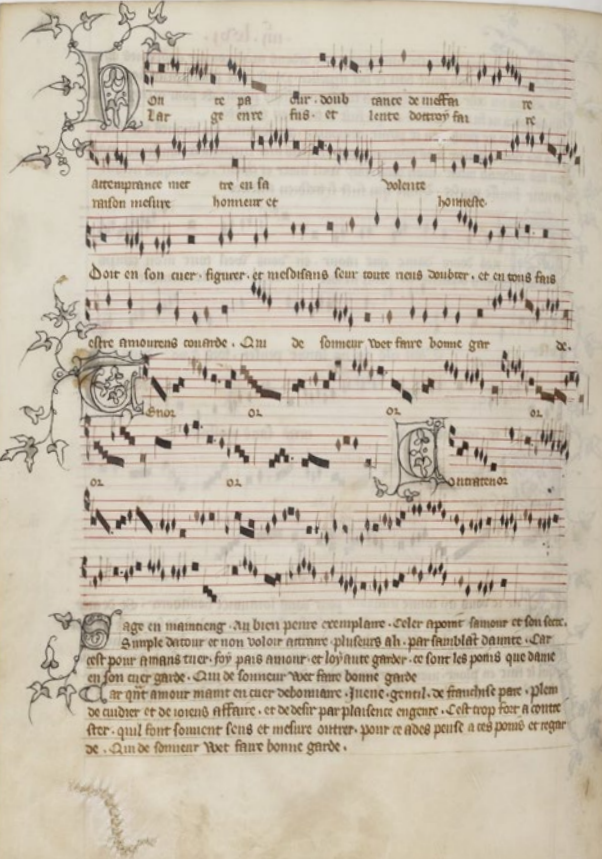 on te pa our · doub tance de meffai re
Lar ge entre fus · et lente dottroy fai re
attemprance met tre en sa volente
raison mesure honneur et honneste ·
Doit en son cuer · figurer · et mesdisans seur toute riens doubter · et en tous fais
estre amoureus couarde · Qui de sonneur vuet faire bonne gar de ·
Tenor or or or
or or ontratenor
Sage en maintieng · Au bien penre exemplaire · Celer a point samour et son secre ·
Simple datour et non voloir attraire · pluseurs a li · par samblat damite · Car
cest pour amans tuer · foy pais amour · et loyaute garder · ce sont les poins que dame
en son cuer garde · Qui de sonneur vuet faire bonne garde
Car qnt amour maint en cuer debonnaire · Juene · gentil · de franchise pare · plein
de cuidier et de joieus affaire · et de desir par plaisence engenre · Cest trop fort a contre
ster · quil font souvent sens et mesure outrer · pour ce ades pense a ces poins et regar
de · Qui de sonneur vuet faire bonne garde ·